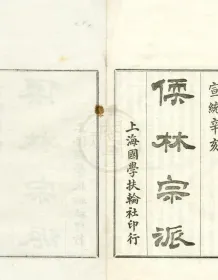 宣統辛亥
儒林宗派
上海國學扶輪社印行